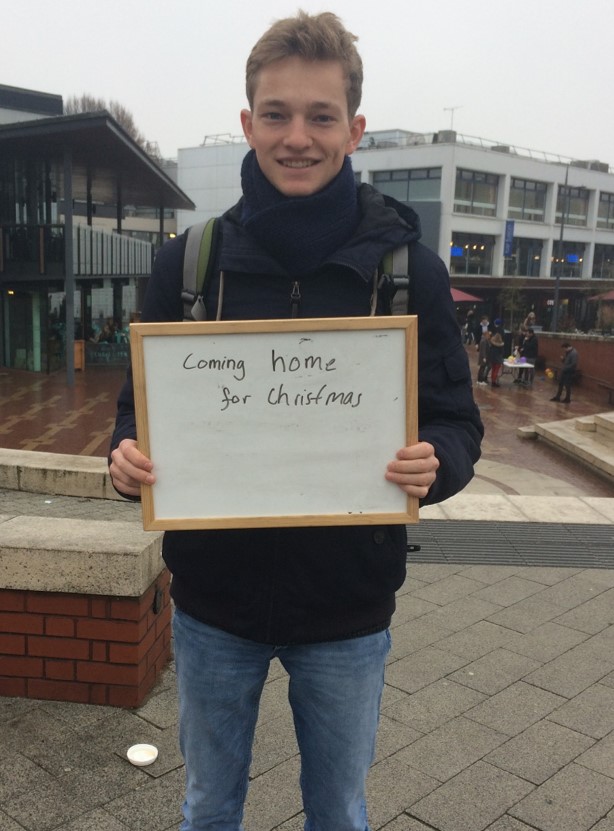 Coming home
for christmas